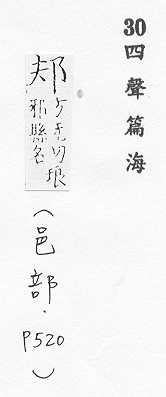 30 四聲篇海
邞
方无切琅
邪縣名
（邑部．P520）